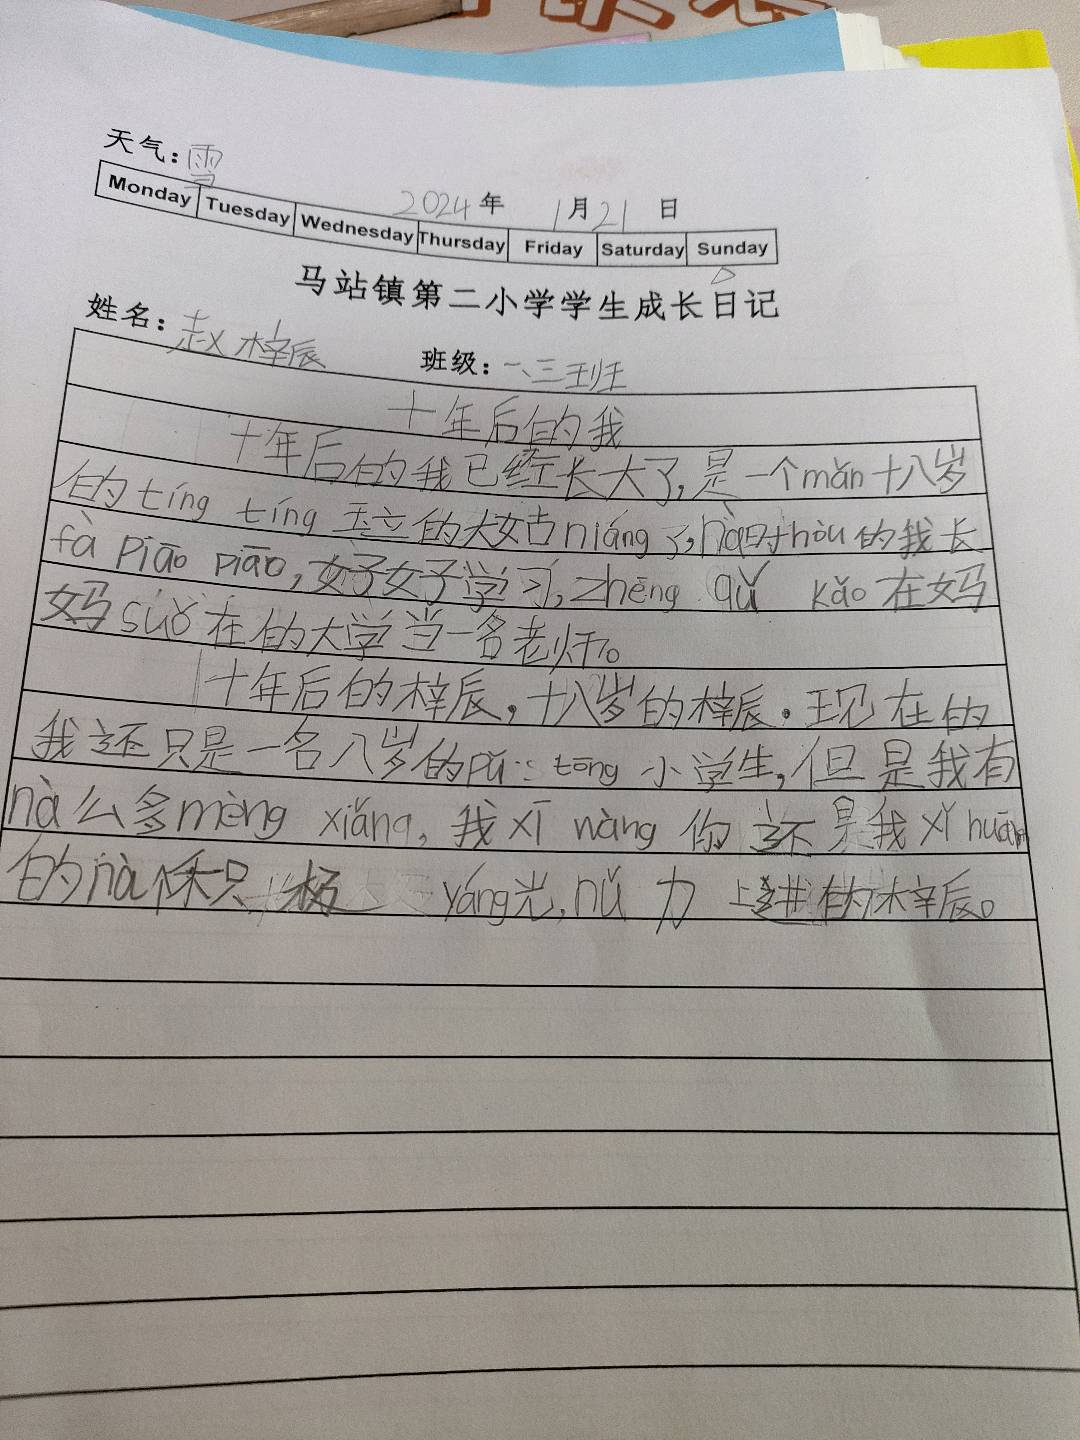 天气：雪
2024年 1月21日
Monday Tuesday Wednesday Thursday Friday Saturday Sunday
马站镇第二小学学生成长日记
姓名：赵梓辰 班级：一、三班
十年后的我
十年后的我已经长大了,是一个mǎn十八岁
的tíng tíng 玉立的大姑niáng了,nà时hòu的我长
fà piāo piāo,好好学习,zhēng qǔ kǎo在妈
妈suǒ在的大学当一名老师。
十年后的梓辰,十八岁的梓辰.现在的
我还只是一名八岁的pǔ tōng 小学生,但是我有
nà么多mèng xiǎng,我xī wàng 你还是我xǐ huān
的nà yáng光,nǔ 力 上进的梓辰。